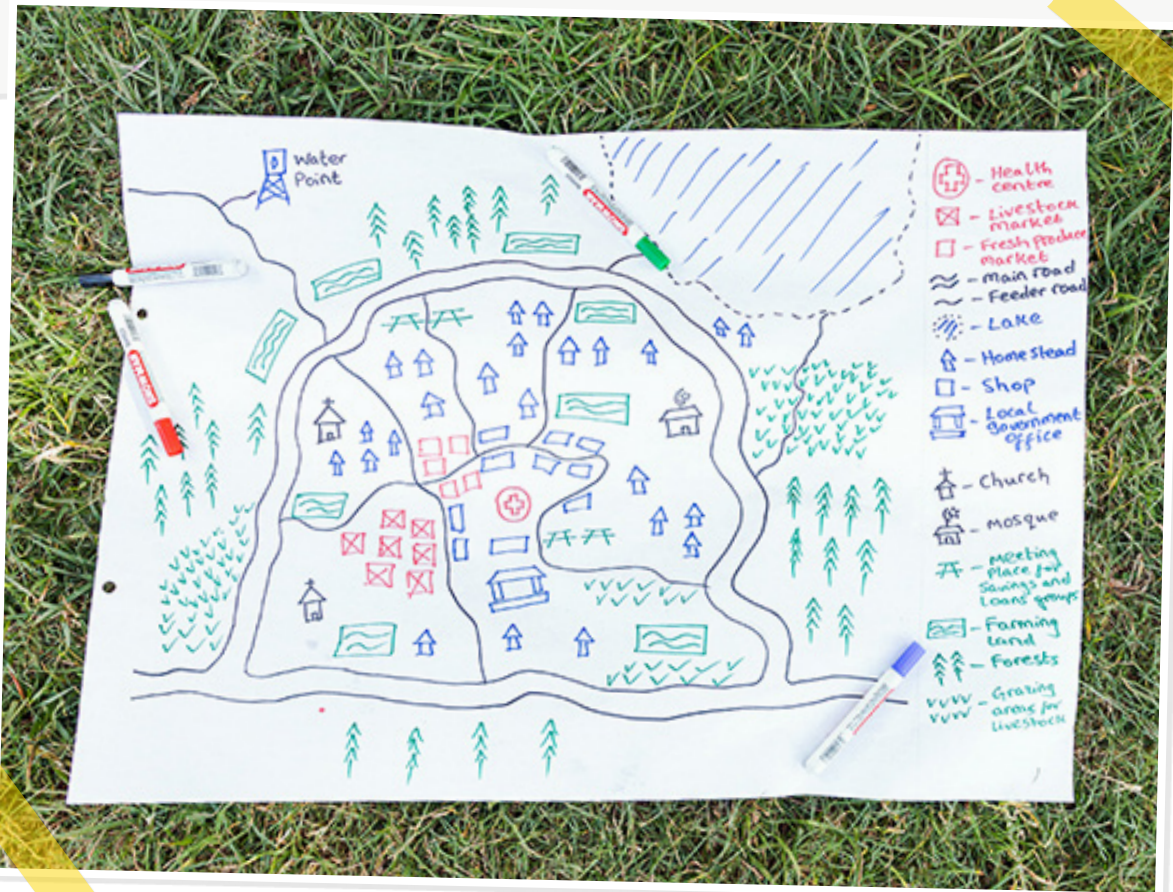 Water
Point
- Health
centre
- Livestock
market
- Fresh produce
market
- Main road
- Feeder road
- Lake
- Homestead
- Shop
- Local
government
office
- Church
- Mosque
- Meeting
Place for
Savings and
Loans groups
- Farming
Land
- Forests
- Grazing
areas for
livestock